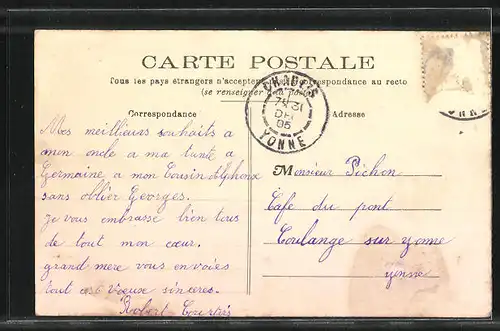 CARTE POSTALE
Tous les pays étrangers n'acceptent pas la Correspondance au recto
(se renseigner à la poste)
Correspondance
Adresse
CHABLIS
31
DEC
05
YONNE
ONNE
Mes meillieurs souhaits a
mon oncle a ma tante a
Germaine a mon Cousin Alphonse
sans oblier Georges.
Je vous embrasse bien tous
de tout mon cœur.
grand mere vous en voies
tout ces vœuse sinceres.
Robert
Monsieur Pichon
Cafe du pont
Coulange sur yonne
yonne